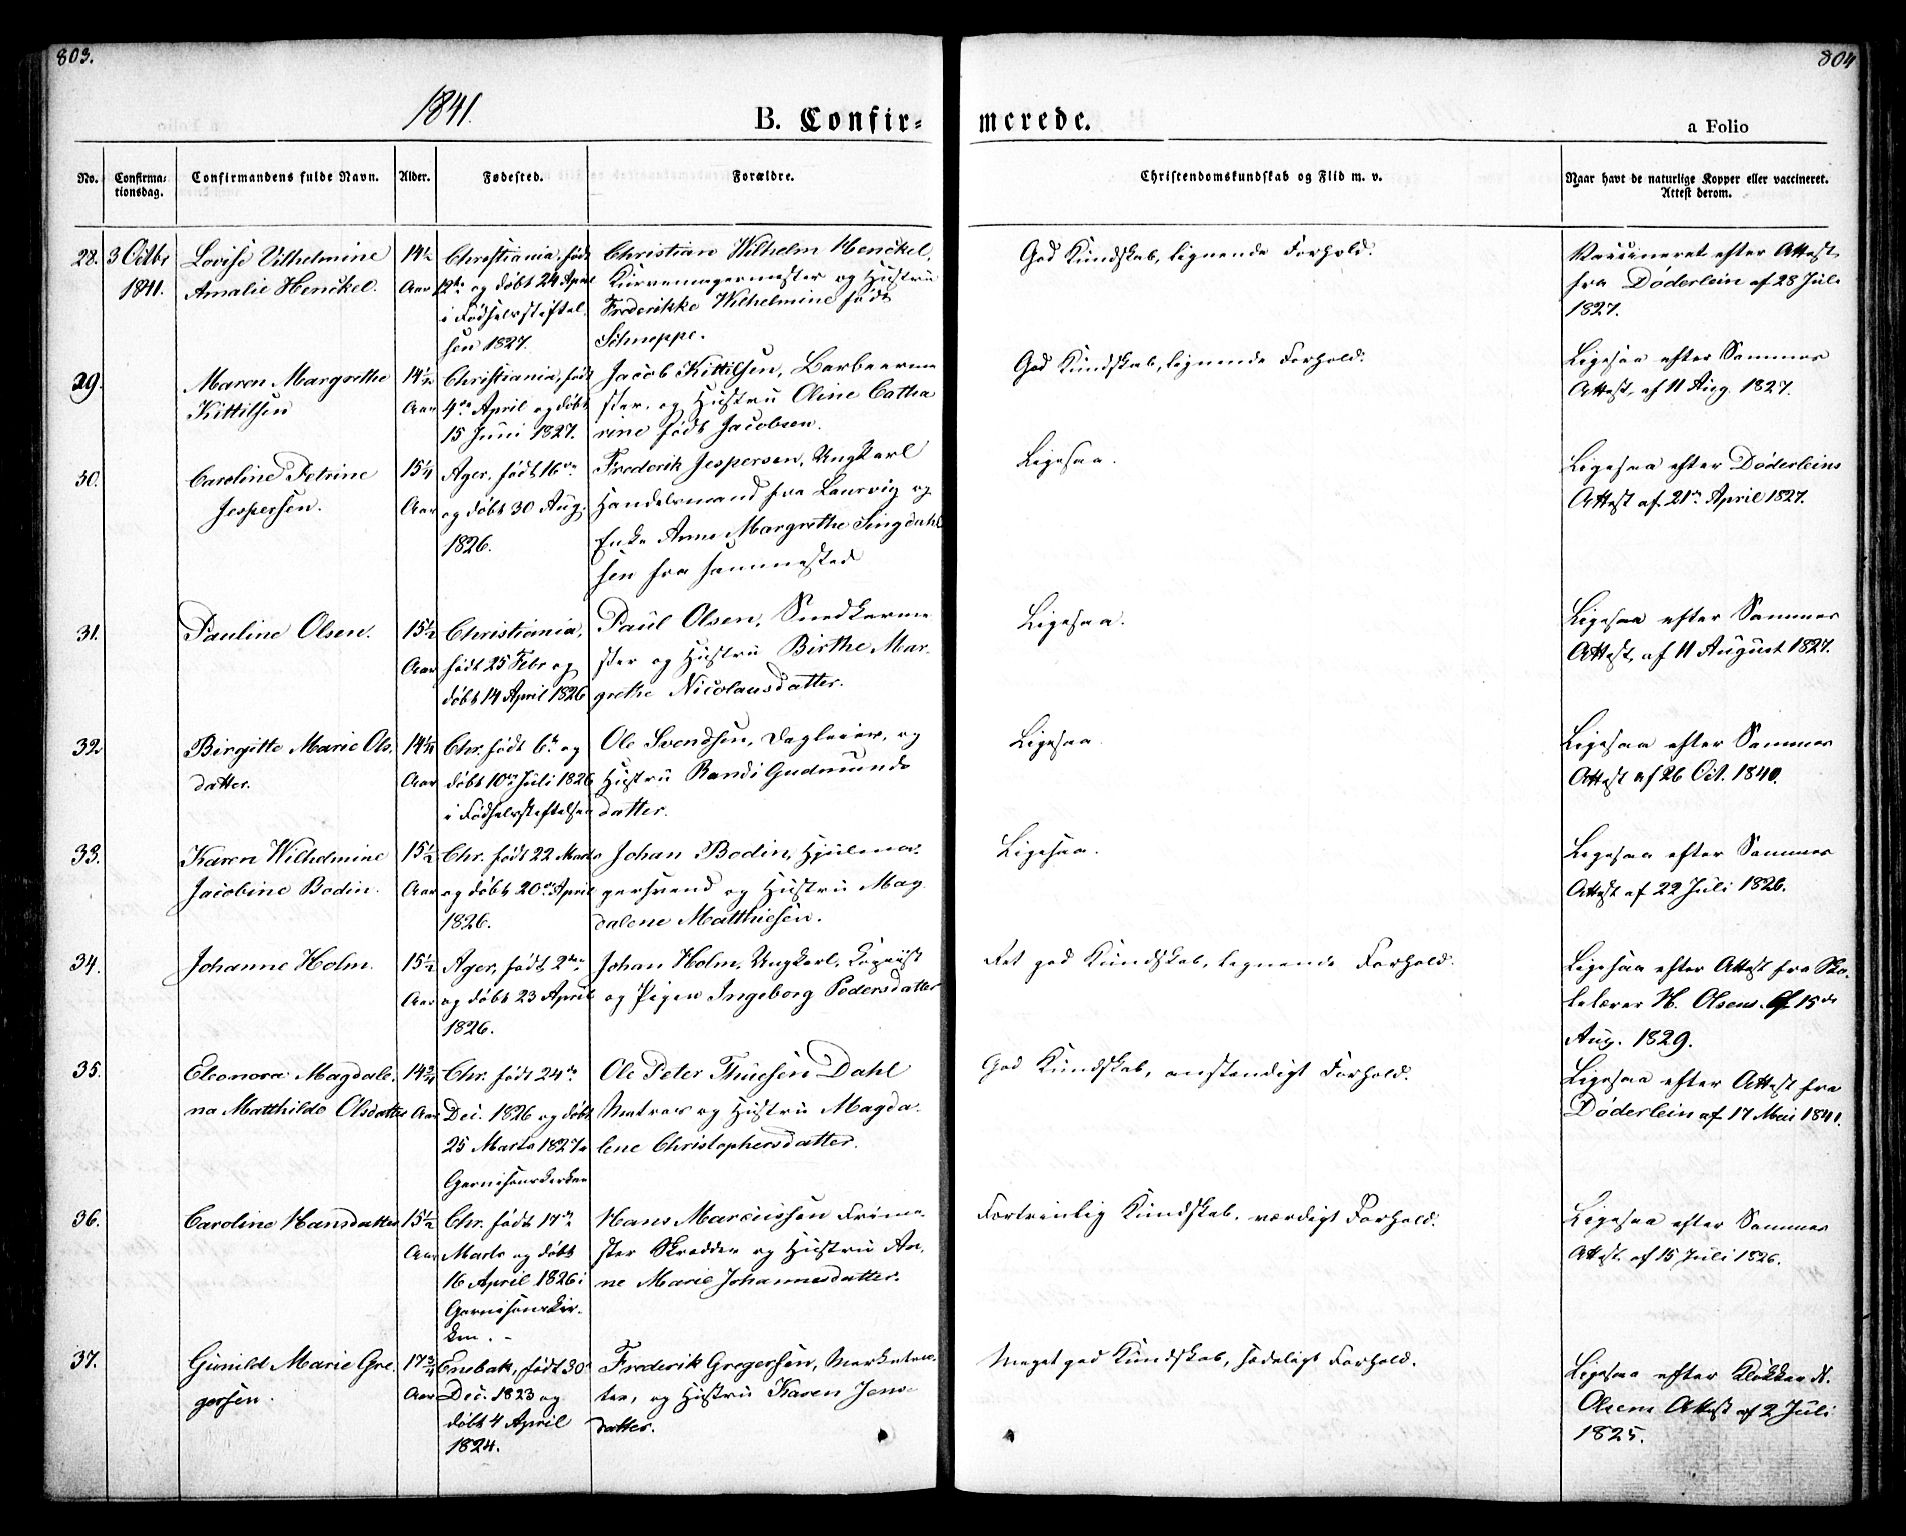 803.
804
1841.
B. Confir=
merede.
a Folio
No.
Confirma=
tionsdag.
Confirmandens fulde Navn.
Alder.
Fødested.
Forældre.
Christendomskundskab og Flid m. v.
Naar havt de naturlige Kopper eller vaccineret.
Attest derom.
28.
3 Octbr
1841.
Lovise Vilhelmine
Amalie Henckel.
14½
Aar
Christiania, født
12te og døbt 24 April
i Fødselsstiftel
sen 1827.
Christian Wilhelm Henckel,
Kurvemagermester og Hustru
Frederikke Wilhelmine født
Schneppe.
God Kundskab, lignende Forhold.
Vaccineret efter Attest
fra Døderlein af 28 Juli
1827.
29.
Maren Margrethe
Kittilsen
14½
Aar
Christiania, født
4de April og døbt
15 Juni 1827.
Jacob Kittilsen, Barbeerme
ster, og Hustru Oline Catha
rine født Jacobsen.
God Kundskab, lignende Forhold.
Ligesaa efter Sammes
Attest, af 11 Aug. 1827.
30.
Caroline Petrine
Jespersen.
15¼
Aar
Ager, født 16de
og døbt 30 Aug.
1826.
Frederik Jespersen, Ungkarl
Handelsmand fra Laurvig og
Enke Anne Margrethe Singdahl
sen fra sammested
Ligesaa.
Ligesaa efter Døderleins
Attest af 21de April 1827.
31.
Pauline Olsen.
15½
Aar
Christiania,
født 25 Febr og
døbt 14 April 1826
Paul Olsen, Snedkerme
ster og Hustru Birthe Mar-
grethe Nicolausdatter.
Ligesaa.
Ligesaa efter Sammes
Attest, af 11 August 1827.
32
Birgitte Marie Ols.
datter.
Aar
Chr. født 6te og
døbt 10de Juli 1826
i Fødselsstiftelsen
Ole Svendsen, Dagleier, og
Hustru Randi Gudmunds
datter.
Ligesaa
Ligesaa efter Sammes
Attest af 26 Oct. 1840.
33.
Karen Wilhelmine
Jacobine Bodin.
15½
Aar
Chr. født 22 Marts
og døbt 20de April
1826.
Johan Bodin, Hjulma-
gersvend og Hustru Mag
dalene Matthiesen.
Ligesaa.
Ligesaa efter Sammes
Attest af 22 Juli 1826.
34.
Johanne Holm.
15½
Aar
Ager, født 2den
og døbt 23 April
1826.
Johan Holm, Ungkarl, Copiist
og Pigen Ingeborg Pedersdatter
Ret god Kundskab, lignende Forhold.
Ligesaa efter Attest fra Sko-
lelærer H. Olsens af 15de
Aug. 1829.
35.
Eleonora Magdale.
na Matthilde Olsdatter
14¾
Aar
Chr. født 24de
Dec. 1826 og døbt
25 Marts 1827 i
Garnisonskirken
Ole Peter Thuesen Dahl
Matros og Hustru Magda-
lene Christophersdatter.
God Kundskab, anstendigt Forhold.
Ligesaa efter Attest fra
Døderlein af 17 Mai 1841.
36.
Caroline Hansdatter
15½
Aar
Chr. født 17de
Marts og døbt
16 April 1826 i
Garnisonskir-
ken. -
Hans Marcussen Frime-
ster Skredder og Hustru An-
ne Marie Johannesdatter.
Fortrinlig Kundskab, værdigt Forhold.
Ligesaa efter Sammes
Attest af 15 Juli 1826.
37.
Gunild Marie Gre.
gersen.
17¾
Aar
Enebak, født 30
Dec. 1823 og
døbt 4 April
1824.
Frederik Gregersen, Marketen-
ter, og Hustru Karen Jens
datter.
Meget god Kundskab, sædeligt Forhold.
Ligesaa efter Klokker N.
Olsens Attest af 2 Juli
1825.